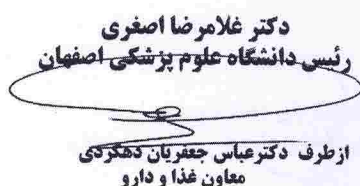 دکتر غلامرضا اصغری
رئیس دانشگاه علوم پزشکی اصفهان
از طرف دکتر عباس جعفریان دهکردی
معاون غذا و دارو